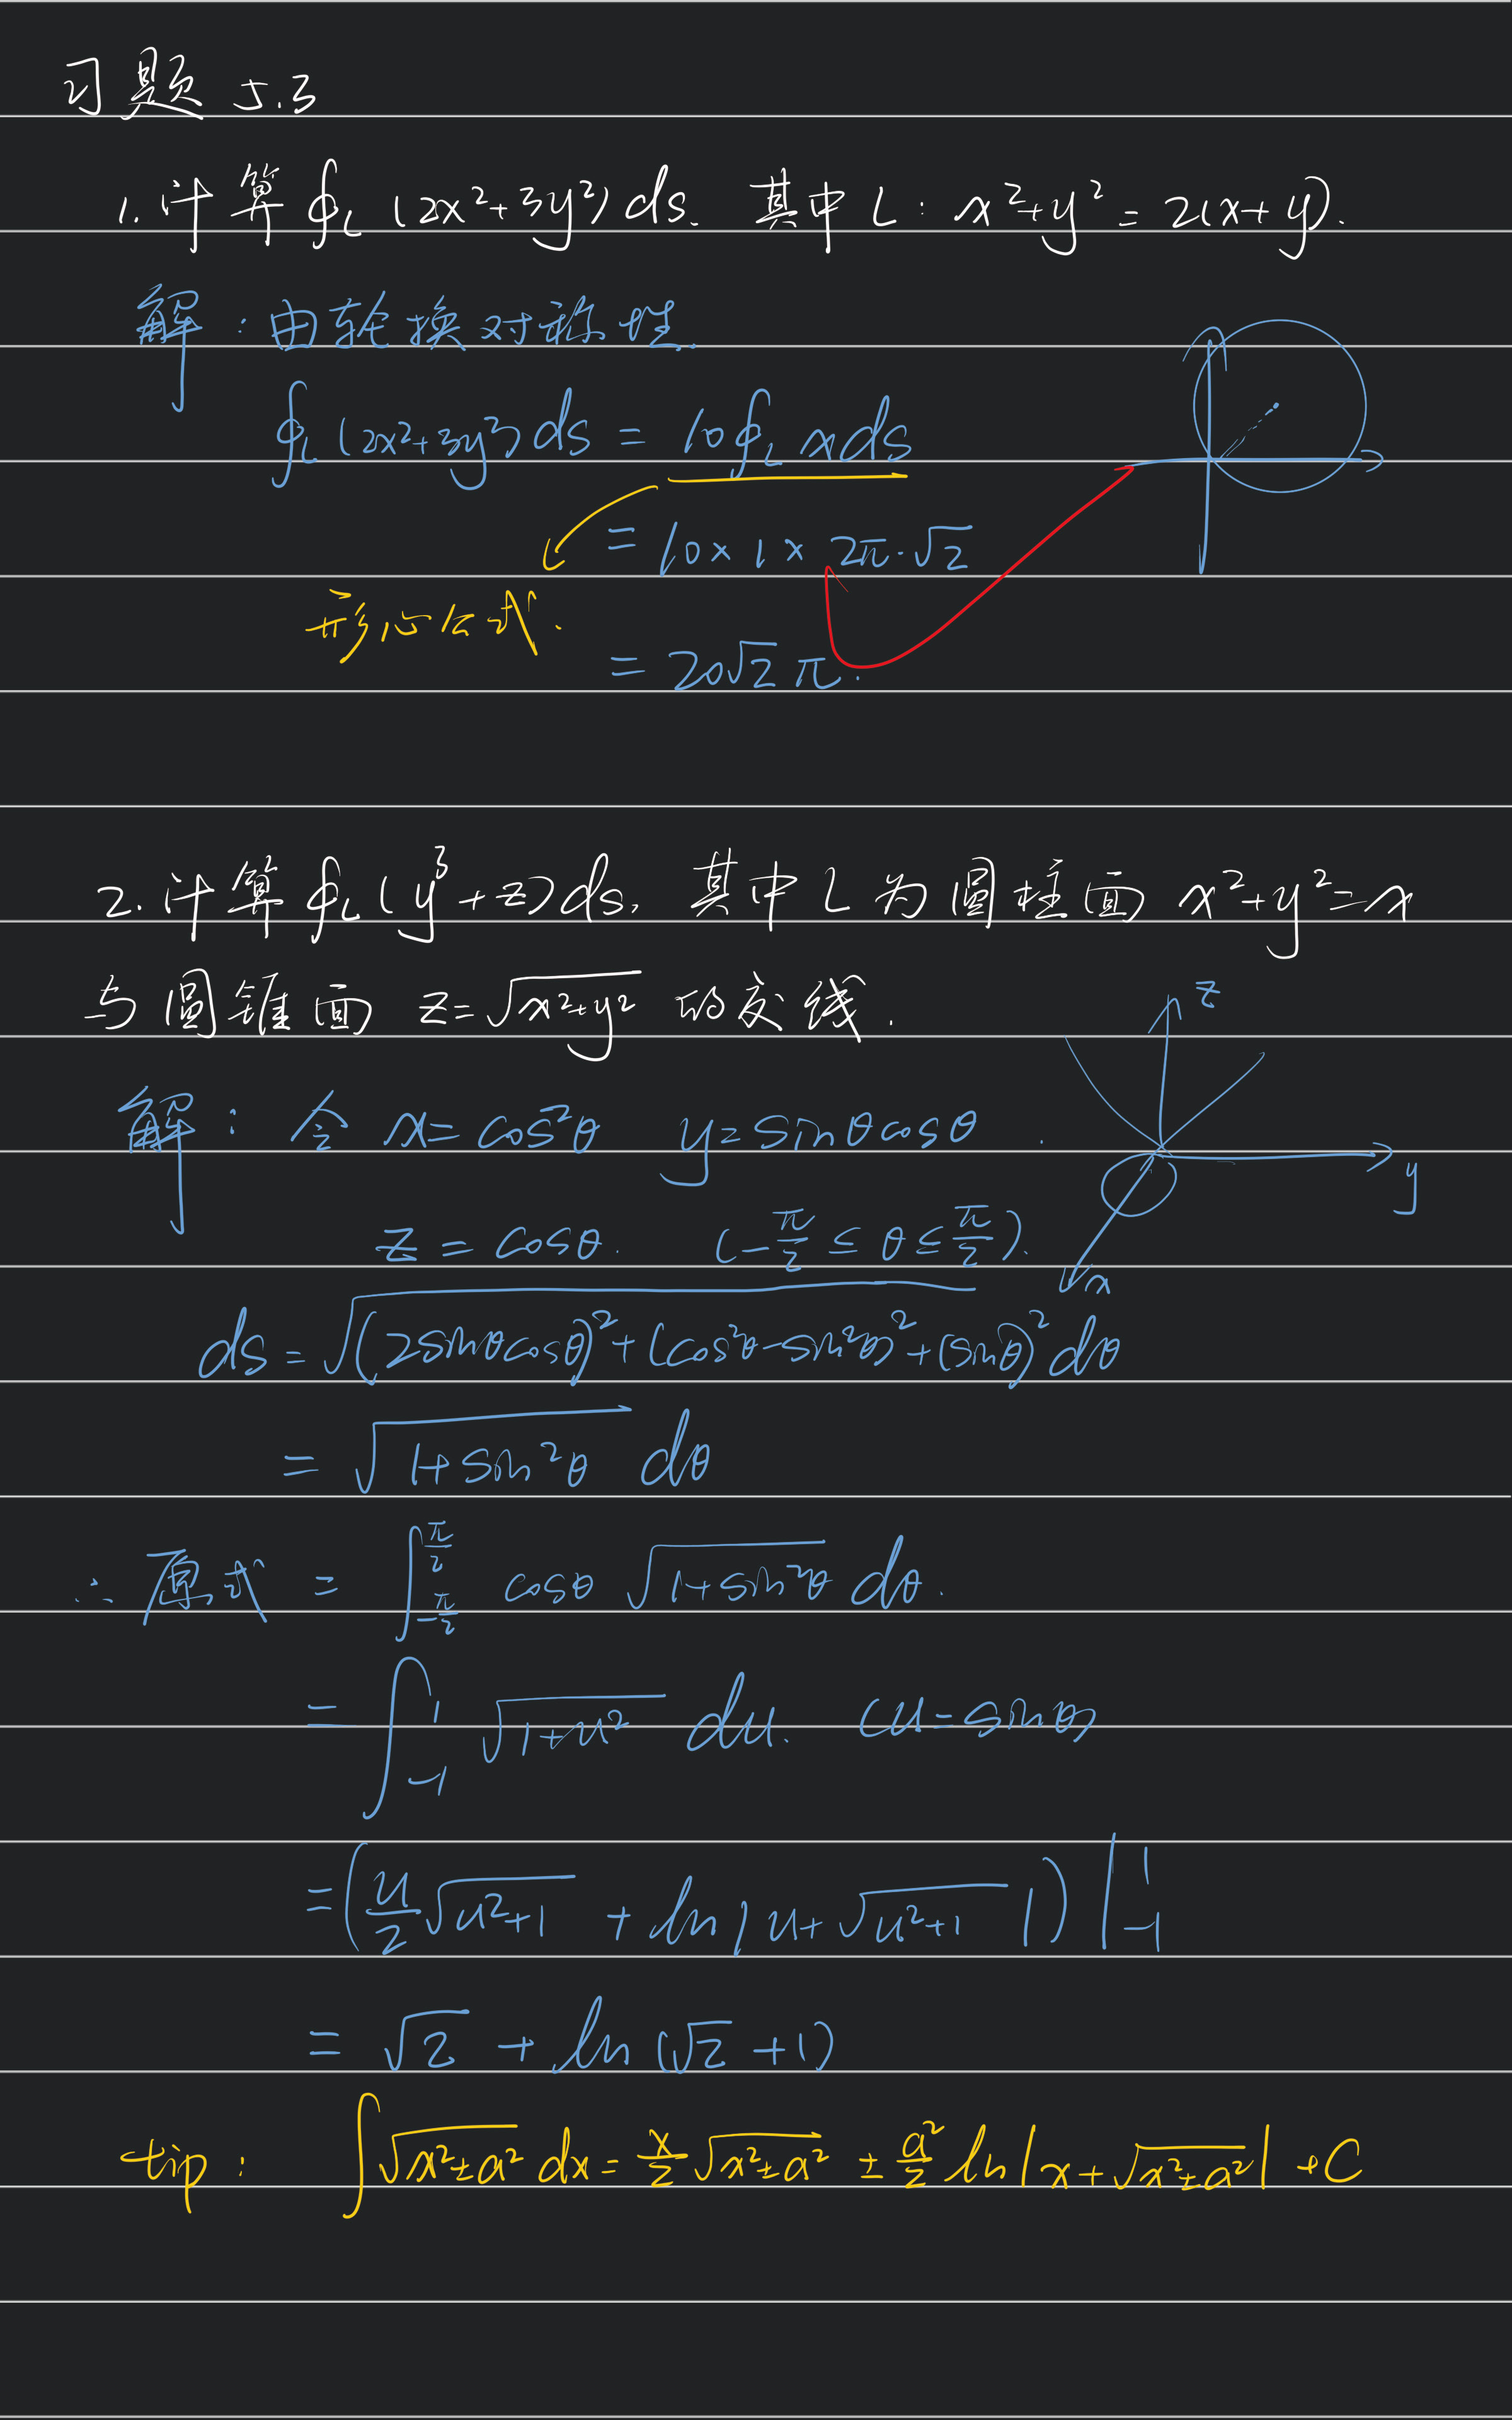 习题 5.3
1. 计算 ∮_L (2x²+3y²) ds. 其中 L: x²+y² = 2(x+y).
解: 由轮换对称性
∮_L (2x²+3y²) ds = 10∮_L x ds
= 10 × 1 × 2π·√2
形心公式.
= 20√2 π.
2. 计算 ∮_L (y³+z) ds, 其中 L 为圆柱面 x²+y²=x
与圆锥面 z=√(x²+y²) 的交线.
z
解: 令 x=cos²θ y=sinθcosθ
y
z = cosθ. (-π/2 ≤ θ ≤ π/2).
x
ds = √((2sinθcosθ)²+(cos²θ-sin²θ)²+(sinθ)²) dθ
= √(1+sin²θ) dθ
∴ 原式 = ∫_{-π/2}^{π/2} cosθ √(1+sin²θ) dθ.
= ∫_{-1}^{1} √(1+u²) du. (u=sinθ)
= (u/2 √(u²+1) + ln|u+√(u²+1)|) |_{-1}^{1}
= √2 + ln(√2+1)
tip: ∫√(x²±a²) dx = x/2 √(x²±a²) ± a²/2 ln|x+√(x²±a²)| + C